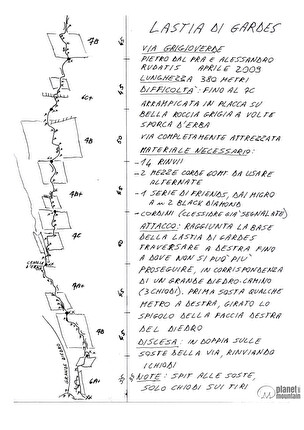 LASTIA DI GARDES
VIA GRIGIOVERDE
PIETRO DAL PRA E ALESSANDRO
RUDATIS APRILE 2009
LUNGHEZZA 380 METRI
DIFFICOLTA': FINO AL 7C
ARRAMPICATA IN PLACCA SU
BELLA ROCCIA GRIGIA A VOLTE
SPORCA D'ERBA
VIA COMPLETAMENTE ATTREZZATA
MATERIALE NECESSARIO:
-14 RINVII
-2 MEZZE CORDE DA USARE
ALTERNATE
-1 SERIE DI FRIENDS, DAI MICRO
A N°2 BLACK DIAMOND
-CORDINI (CLESSIDRE GIA' SEGNALATE)
ATTACCO: RAGGIUNTA LA BASE
DELLA LASTIA DI GARDES
TRAVERSARE A DESTRA FINO
A DOVE NON SI PUO' PIU'
PROSEGUIRE, IN CORRISPONDENZA
DI UN GRANDE DIEDRO-CAMINO
(3 CHIODI). PRIMA SOSTA QUALCHE
METRO A DESTRA, GIRATO LO
SPIGOLO DELLA FACCIA DESTRA
DEL DIEDRO
DISCESA: IN DOPPIA SULLE
SOSTE DELLA VIA, RINVIANDO
I CHIODI
NOTE: SPIT ALLE SOSTE,
SOLO CHIODI SUI TIRI
7B
6C+
7B
7A+
7C
CENGIA
D'ERBA
7A+
7B
GRANDE DIEDRO
6A+
planet
mountain